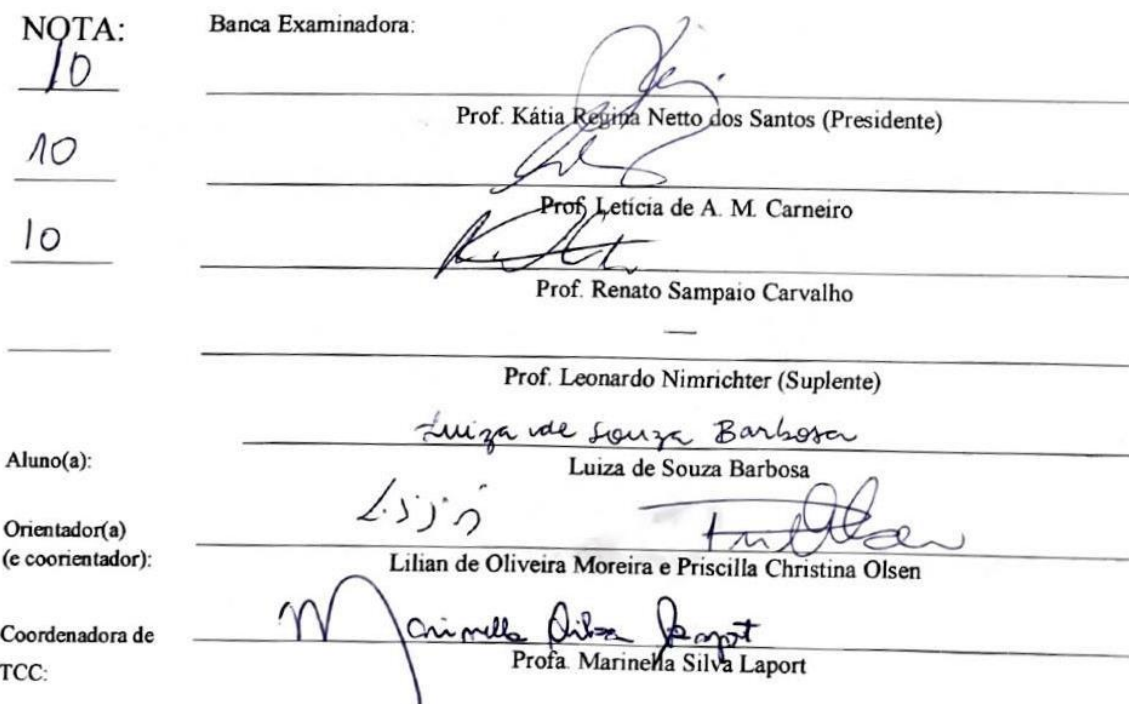 NOTA: Banca Examinadora:
10
Prof. Kátia Regina Netto dos Santos (Presidente)
10
Prof. Letícia de A. M. Carneiro
10
Prof. Renato Sampaio Carvalho
—
Prof. Leonardo Nimrichter (Suplente)
Luiza de Souza Barbosa
Aluno(a): Luiza de Souza Barbosa
Orientador(a)
(e coorientador): Lilian de Oliveira Moreira e Priscilla Christina Olsen
Marinella Silva Laport
Coordenadora de
TCC: Profa. Marinella Silva Laport